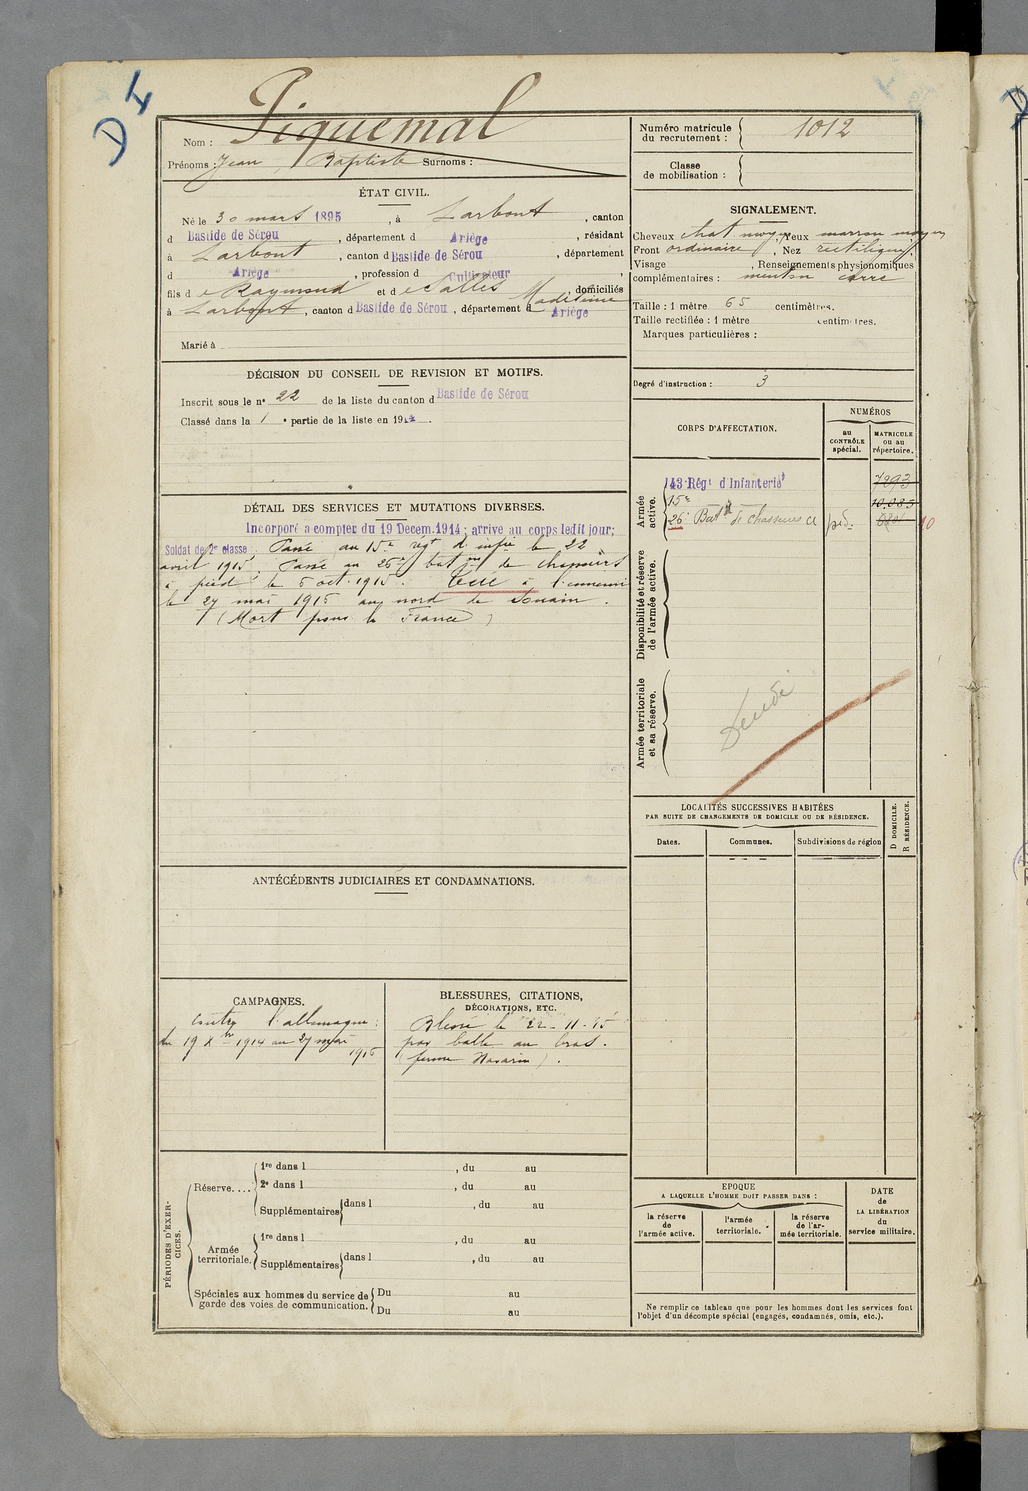 D 4
Piquemal
Nom :
Prénoms : Jean Baptiste Surnoms :
Numéro matricule
du recrutement : 1012
Classe
de mobilisation :
ÉTAT CIVIL.
Né le 30 mars 1895, à Larbont, canton
d Bastide de Sérou, département d Ariège, résidant
à Larbont, canton d Bastide de Sérou, département
d Ariège, profession d Cultivateur,
fils de Raymond et de Madeleine domiciliés
à Larbont, canton d Bastide de Sérou, département d Ariège
Marié à
SIGNALEMENT.
Cheveux chat moyen, Yeux marron moyen
Front ordinaire, Nez rectiligne
Visage , Renseignements physionomiques
complémentaires : menton carré
Taille : 1 mètre 65 centimètres.
Taille rectifiée : 1 mètre centimètres.
Marques particulières :
Degré d'instruction : 3
DÉCISION DU CONSEIL DE REVISION ET MOTIFS.
Inscrit sous le n° 22 de la liste du canton d Bastide de Sérou
Classé dans la 1e partie de la liste en 1914.
DÉTAIL DES SERVICES ET MUTATIONS DIVERSES.
Incorporé a compter du 19 Decem. 1914; arrive au corps ledit jour;
Soldat de 2e classe. Passé au 15e régt d'infie le 22
avril 1915. Passé au 26e batn de chasseurs
à pied le 5 oct. 1915. Tué à l'ennemi
le 27 mai 1916 au nord de Souain.
(Mort pour la France)
CORPS D'AFFECTATION.
NUMÉROS
au
CONTRÔLE
spécial.
MATRICULE
ou au
répertoire.
Armée
active.
143 Régt d'Infanterie 7293
15e 10.085
26e Bat de chasseurs à pd.
Disponibilité et réserve
de l'armée active.
Armée territoriale
et sa réserve.
LOCALITÉS SUCCESSIVES HABITÉES
PAR SUITE DE CHANGEMENTS DE DOMICILE OU DE RÉSIDENCE.
D DOMICILE.
R RÉSIDENCE.
Dates. Communes. Subdivisions de région
ANTÉCÉDENTS JUDICIAIRES ET CONDAMNATIONS.
CAMPAGNES.
Contre l'allemagne :
du 19 Xbre 1914 au 27 mai
1916
BLESSURES, CITATIONS,
DÉCORATIONS, ETC.
Blessé le 22-11-15
par balle au bras.
(ferme Navarin).
PÉRIODES D'EXER-
CICES.
Réserve....
1re dans l , du au
2e dans l , du au
Supplémentaires dans l , du au
Armée
territoriale.
1re dans l , du au
Supplémentaires dans l , du au
Spéciales aux hommes du service de
garde des voies de communication.
Du au
Du au
EPOQUE
A LAQUELLE L'HOMME DOIT PASSER DANS :
la réserve
de
l'armée active.
l'armée
territoriale.
la réserve
de l'ar-
mée territoriale.
DATE
de
LA LIBÉRATION
du
service militaire.
Ne remplir ce tableau que pour les hommes dont les services font
l'objet d'un décompte spécial (engagés, condamnés, omis, etc.).